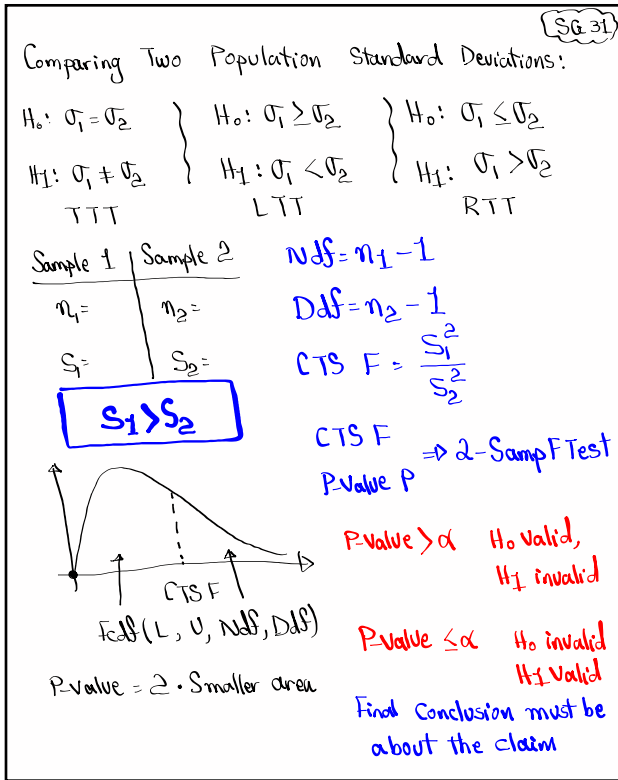 SG 31
Comparing Two Population Standard Deviations:
H₀: σ₁ = σ₂
H1: σ₁ ≠ σ₂
TTT
H₀: σ₁ ≥ σ₂
H1: σ₁ < σ₂
LTT
H₀: σ₁ ≤ σ₂
H1: σ₁ > σ₂
RTT
Sample 1 | Sample 2
n₁= n₂=
S₁= S₂=
S1 > S2
Ndf = n1 - 1
Ddf = n2 - 1
CTS F = S₁²/S₂²
CTS F
P-Value P ⇒ 2-SampFTest
CTS F
Fcdf(L, U, Ndf, Ddf)
P-value = 2 · Smaller area
P-value > α H₀ Valid,
H1 invalid
P-value ≤ α H₀ invalid
H1 Valid
Final Conclusion must be
about the claim